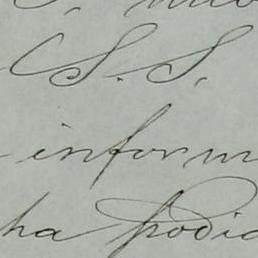 S. S.
inform
ha podid